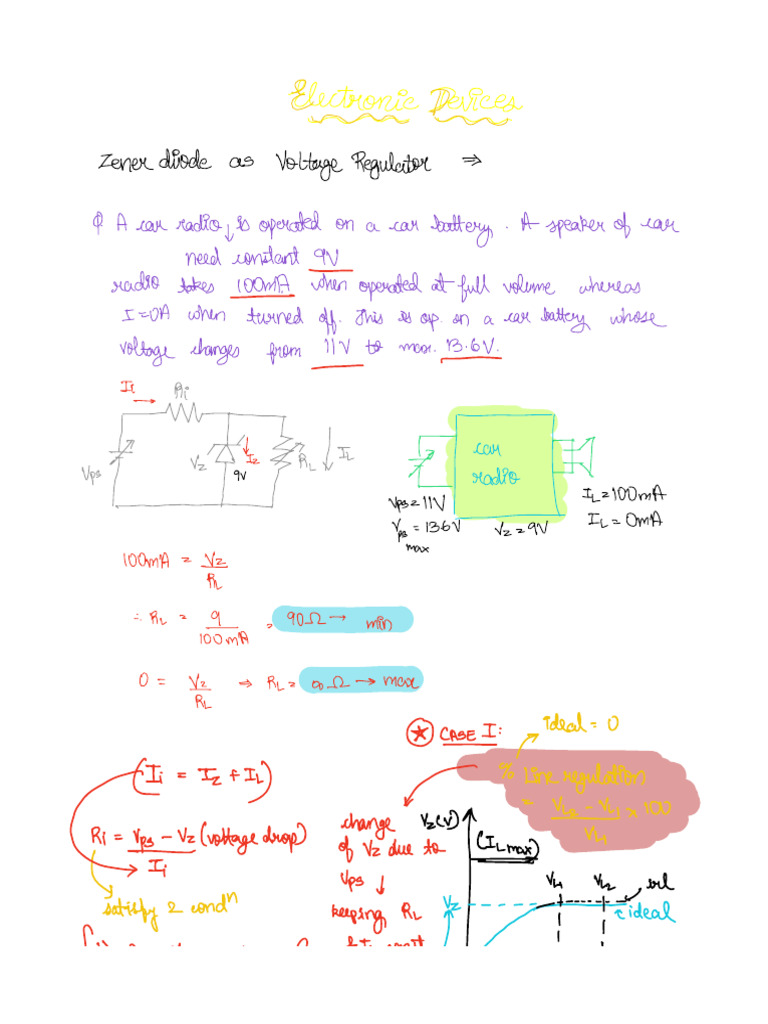 Electronic Devices
Zener diode as Voltage Regulator ⇒
Q A car radio ↓ is operated on a car battery. A speaker of car
need constant 9V
radio takes 100mA when operated at full volume whereas
I=0A when turned off. This is op. on a car battery whose
voltage changes from 11V to max. 13.6V.
Ii →
Ri
Vps
Vz
9V
Iz
RL
↓ IL
car
radio
Vps = 11V
Vps max = 13.6V
Vz = 9V
IL = 100mA
IL = 0mA
100mA = Vz / RL
∴ RL = 9 / 100mA = 90Ω → min
0 = Vz / RL ⇒ RL = ∞Ω → max
* CASE I:
ideal = 0
% Line regulation
= VL2 - VL1 / VL1 × 100
(Ii = Iz + IL)
Ri = Vps - Vz (voltage drop) / Ii
satisfy 2 condn
change
of Vz due to
Vps ↓
keeping RL
Vz(V)
(ILmax)
VL1
VL2
Vz
ideal